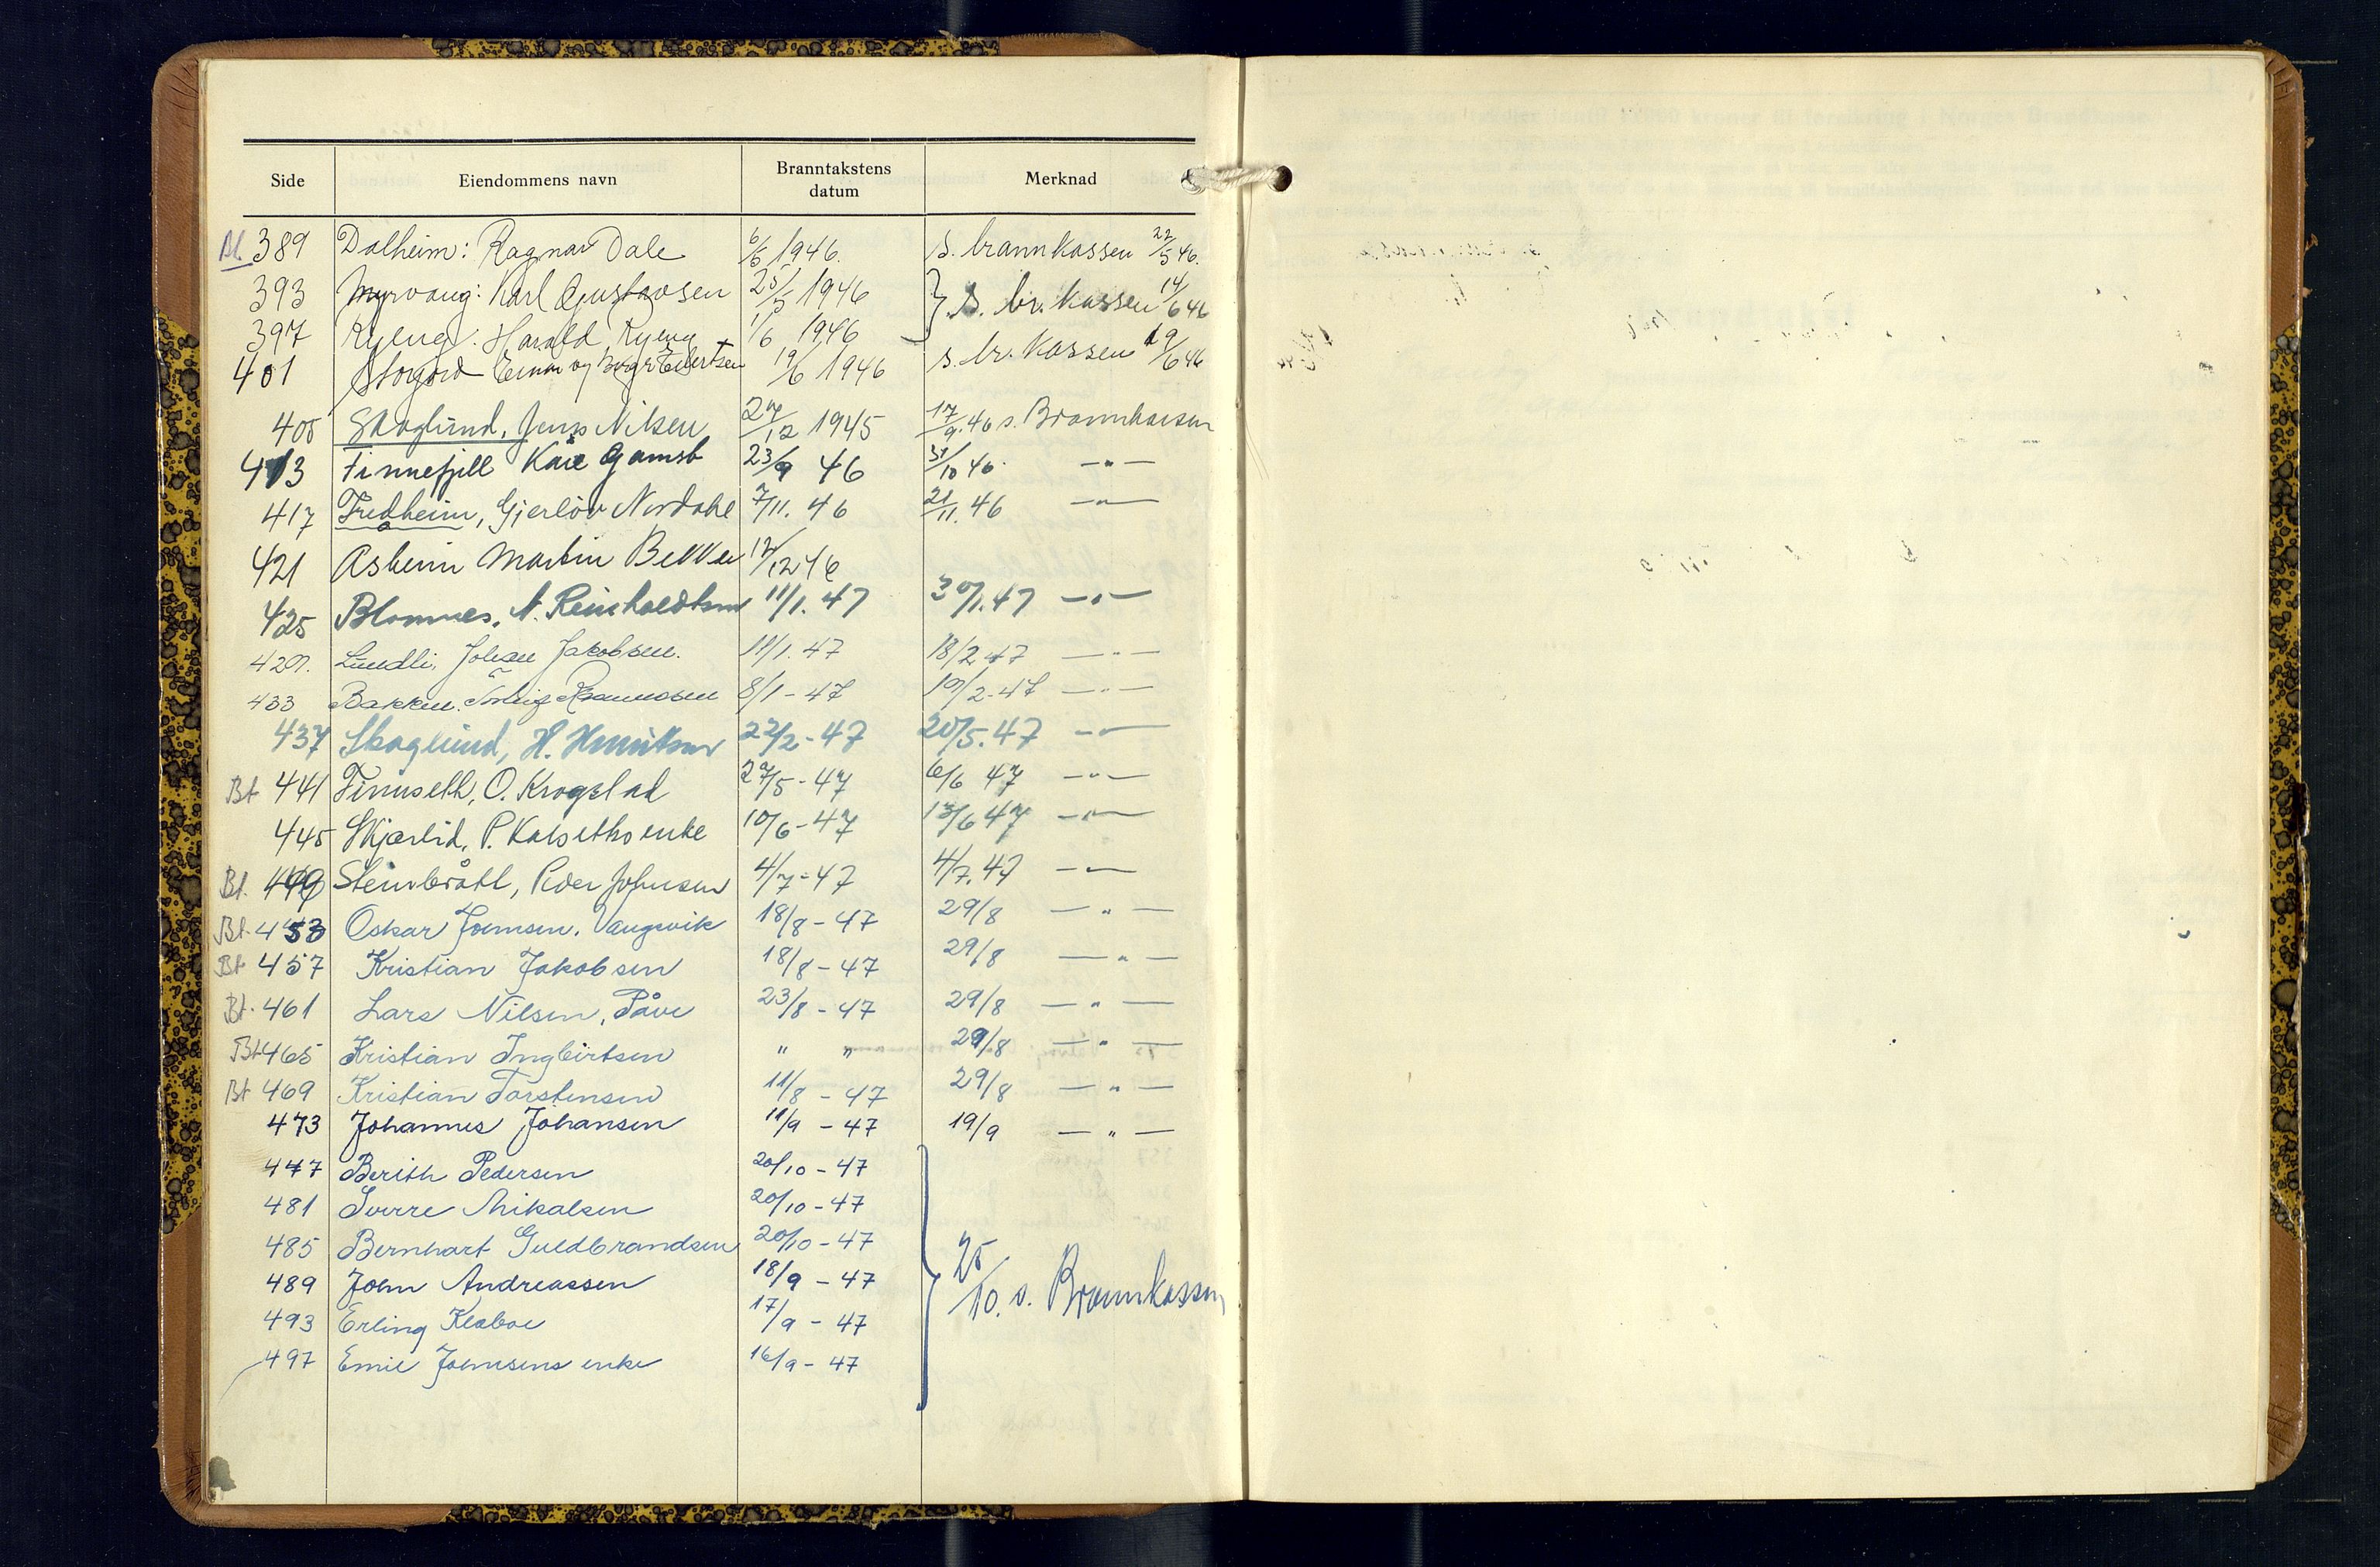 Side Eiendommens navn Branntakstens datum Merknad
Bt. 389 Dalheim: Ragnar Dale 6/5 1946. s. brannkassen 22/5 46.
393 Myrvang: Karl Gustavsen 25/5 1946 } s. br. kassen 14/6 46
397 Ryeng: Harald Ryeng 1/6 1946
401 Storjord Einar og 19/6 1946 s. br. kassen 19/6 46
405 Skoglund, Jens Nilsen 27/12 1945 17/9.46 s. Brannkassen
413 Finnefjell Kåre Gamst 23/9 46 31/10 46. — " —
417 Fredheim, Gjerlöv Nordahl 7/11. 46 21/11. 46 — " —
421 Åsheim Martin Bekken 12/12 46
425 Blomnes, N. Reinholdtsen 11/1. 47 30/1. 47 — " —
429. Lundli, Johan Jakobsen. 11/1. 47 18/2 47 — " —
433 Bakken, Rasmussen 8/1 - 47 19/2 - 47 — " —
437 Skoglund, H. Henriksen 22/2 - 47 20/5. 47 — " —
Bt 441 Finnseth, O. Krogstad 27/5 - 47 6/6 47 — " —
445 Skjærlid, P. Kalseths enke 10/6 - 47 13/6 47 — " —
Bt. 449 Steinbråtl, Peder Johnsen 4/7 - 47 4/7. 47 — " —
Bt. 453 Oskar Joensen, Vangsvik 18/8 - 47 29/8 — " —
Bt 457 Kristian Jakobsen 18/8 - 47 29/8 — " —
Bt. 461 Lars Nilsen, Påve 23/8 - 47 29/8 — " —
Bt 465 Kristian Ingbertsen " " 29/8 — " —
Bt 469 Kristian Torstensen 11/8 - 47 29/8 — " —
473 Johannes Johansen 11/9 - 47 19/9 — " —
477 Berith Pedersen 20/10 - 47
481 Sverre Mikalsen 20/10 - 47
485 Bernhart Guldbrandsen 20/10 - 47
489 John Andreassen 18/9 - 47 } 25/10. s. Brannkassen
493 Erling Klaboe 17/9 - 47
497 Emil Joensens enke 16/9 - 47